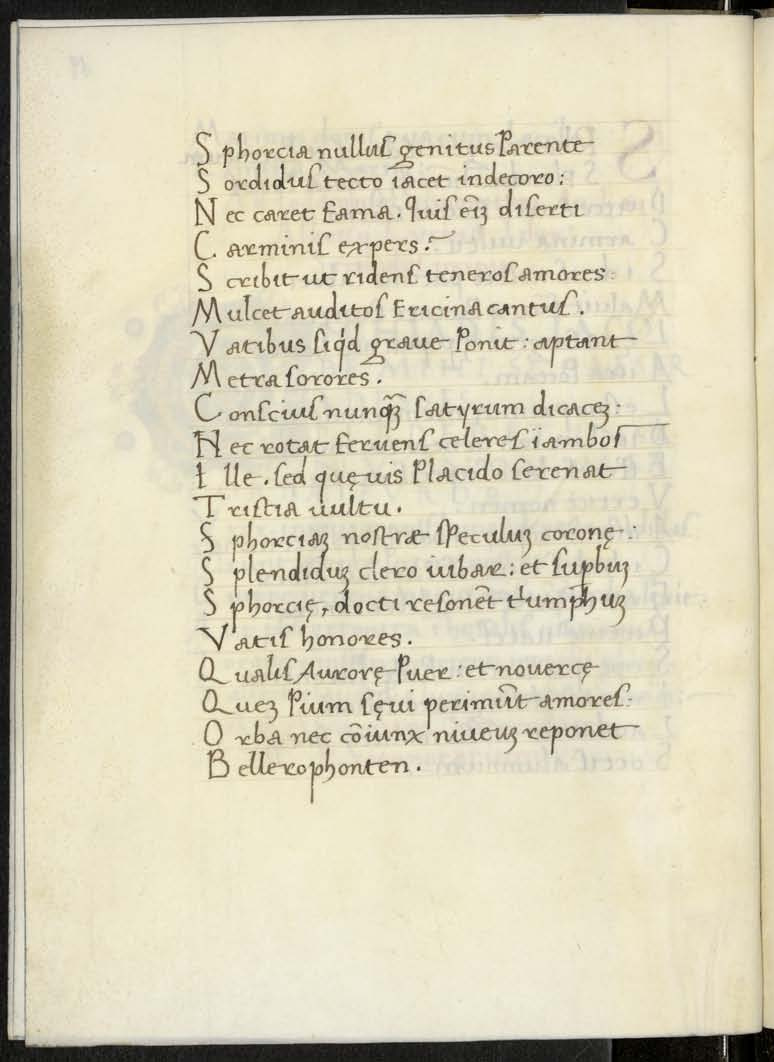 S phorcia nulluſ genitus Parente
S ordiduſ tecto iacet indecoro:
N ec caret fama. Quiſ eīꝫ diſerti
C arminiſ expers.
S cribit ut ridenſ teneroſ amores:
M ulcet auditoſ Ericina cantuſ.
V atibus ſiqd graue Ponit: aptant
M etra ſorores.
C onſciuſ nunq̄ꝫ ſatyrum dicaceꝫ:
N ec rotat feruenſ celereſ ïamboſ
I lle. ſed quęuis Placido ſerenat
T riſtia uultu.
S phorciaꝫ noſtræ ſPeculuꝫ coronę:
S plendiduꝫ clero iubar: et ſupbuꝫ
S phorcię, docti reſonēt tⁱumphuꝫ
V atiſ honores.
Q ualiſ Aurorę Puer: et nouercę
Q ueꝫ Pium ſęui perimūt amoreſ:
O rba nec cōiunx niueuꝫ reponet
B ellerophonten.